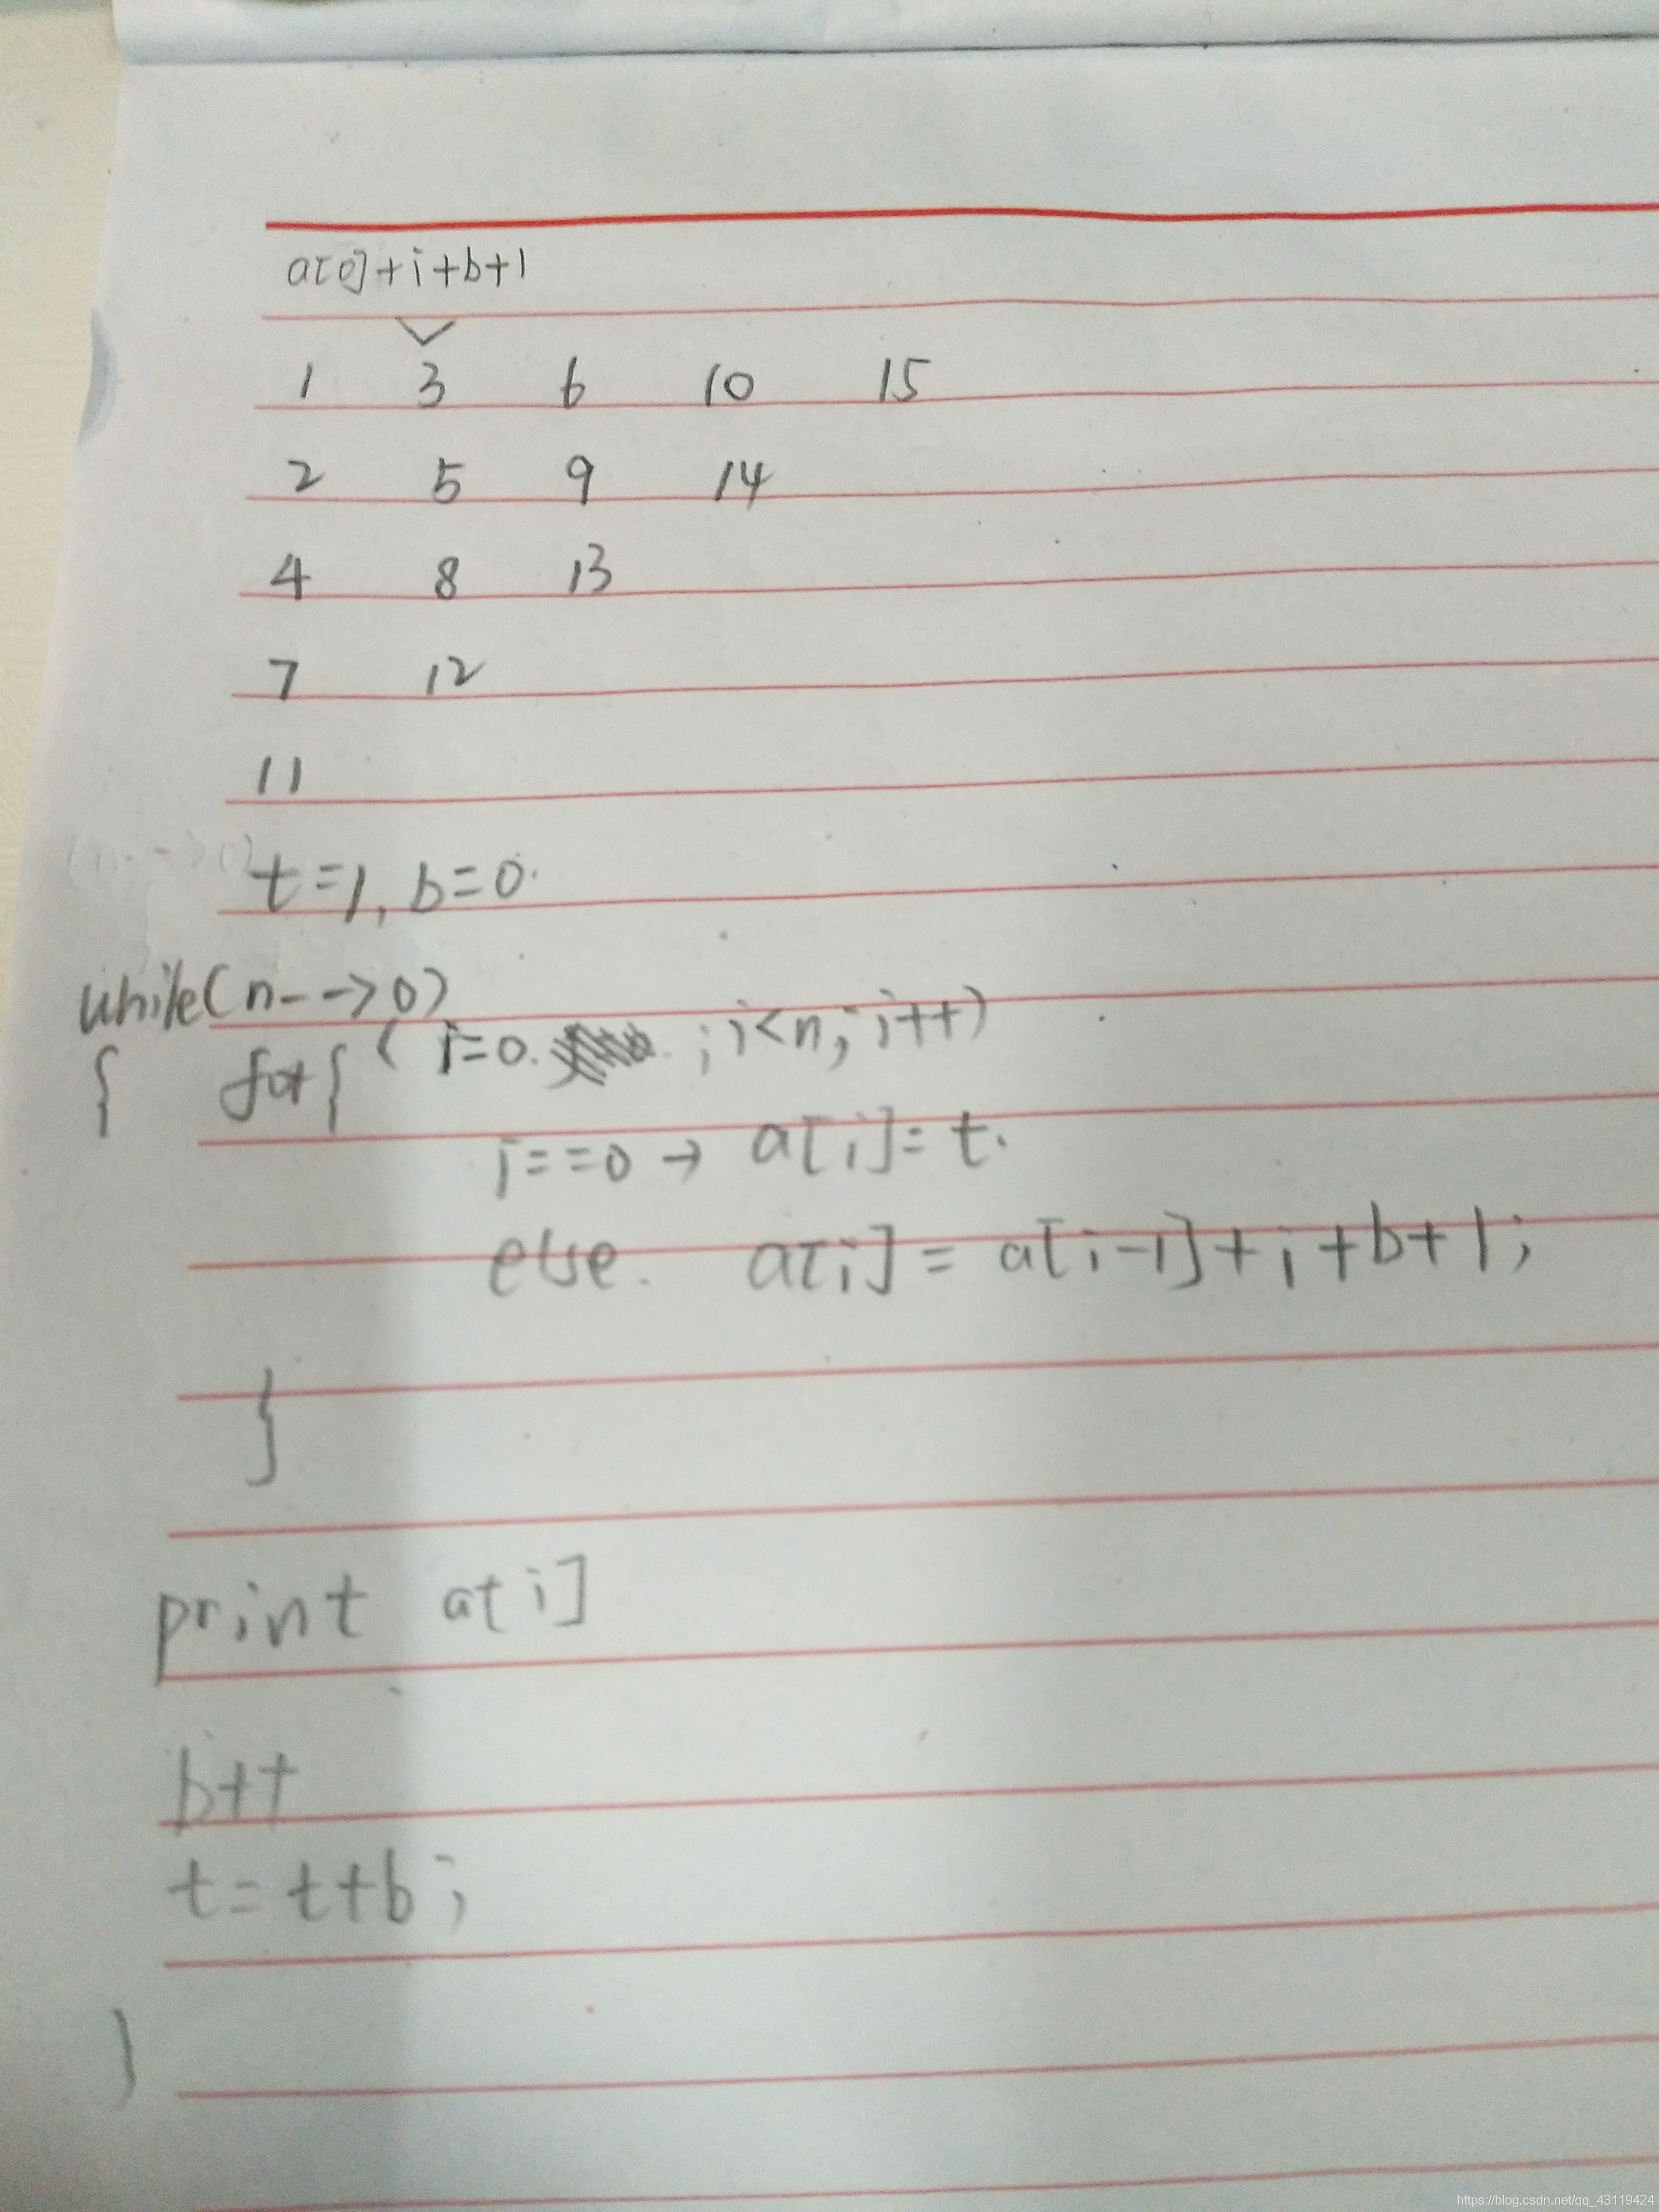 a[0]+i+b+1
1 3 6 10 15
2 5 9 14
4 8 13
7 12
11
t=1, b=0.
while(n-->0)
{ for{ ( i=0. ; i<n; i++)
i==0 → a[i]= t.
else. a[i] = a[i-1]+i+b+1;
}
print a[i]
b++
t= t+b;
}
https://blog.csdn.net/qq_43119424